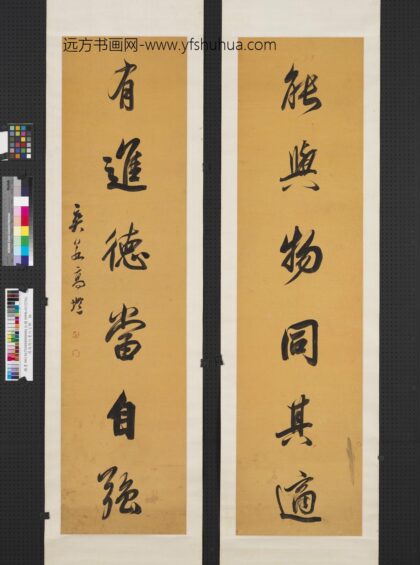 远方书画网-www.yfshuhua.com
能與物同其適
有進德當自強
爽泉高塏